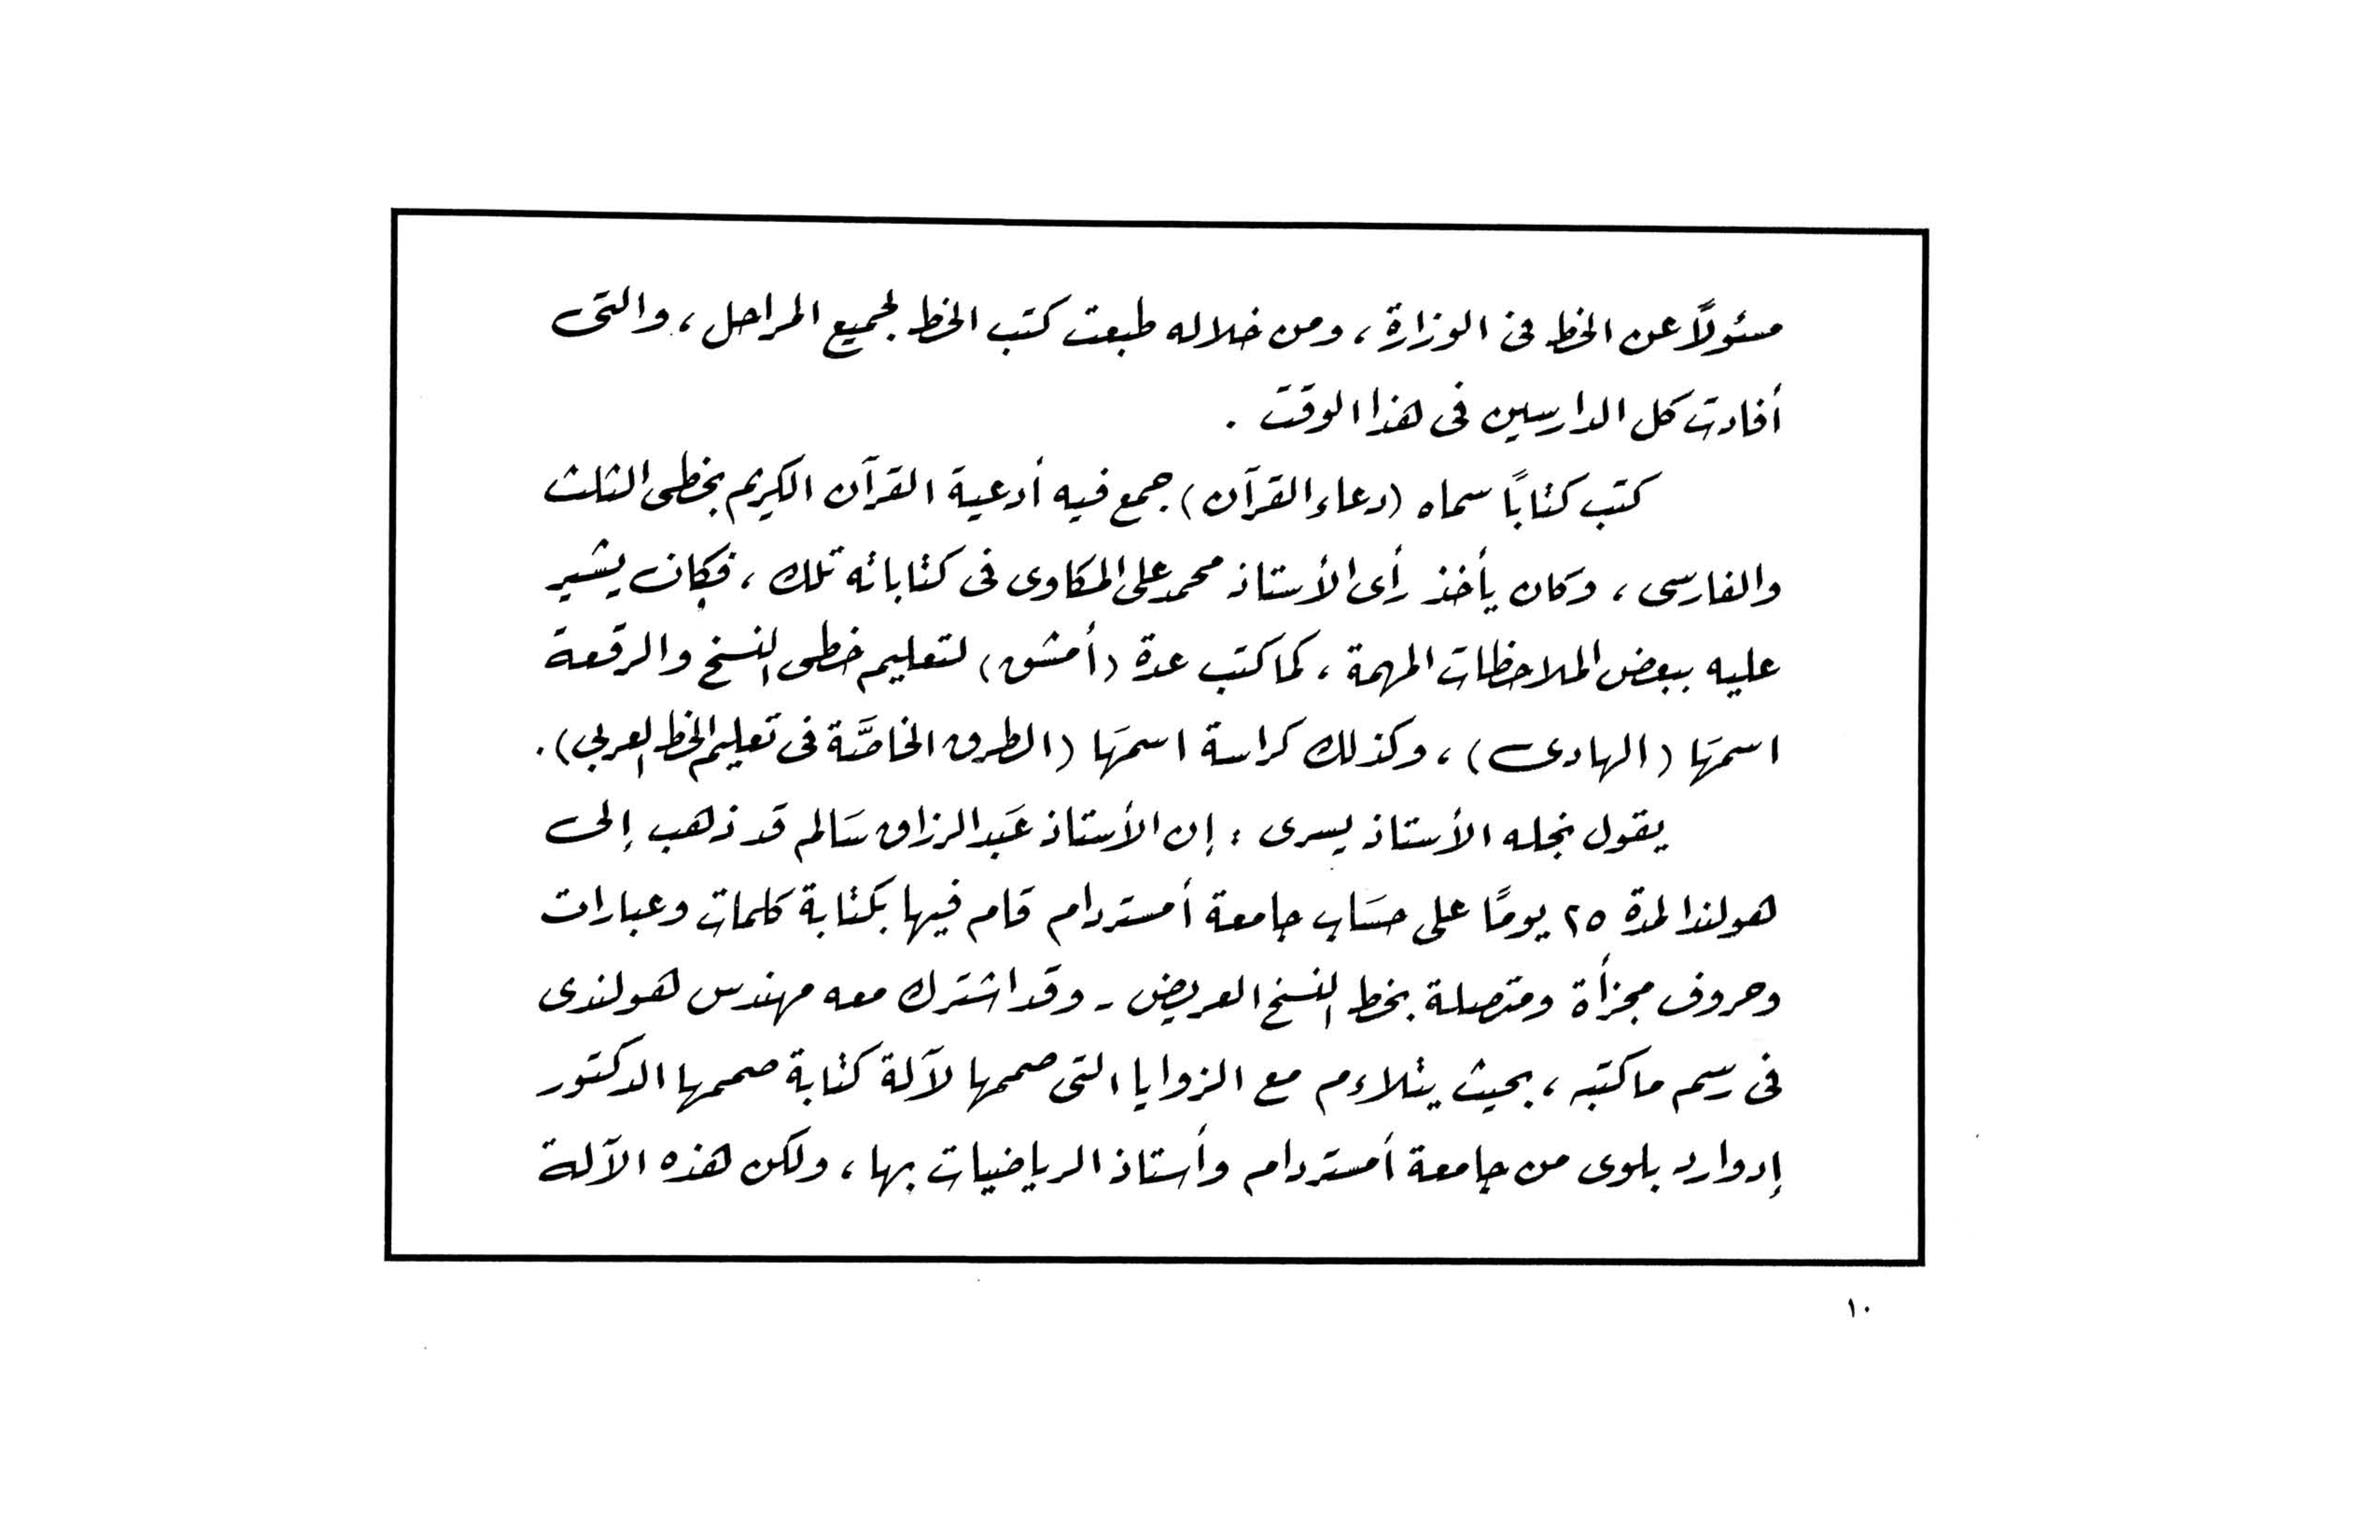 مسئولاً عن الخط فى الوزارة ، ومن خلاله طبعت كتب الخط لجميع المراحل ، والتى
أفادت كل الدارسين فى هذا الوقت .
كتب كتاباً سماه (دعاء القرآن) جمع فيه أدعية القرآن الكريم بخطى الثلث
والفارسى ، وكان يأخذ رأى الأستاذ محمد على المكاوى فى كتاباته تلك ، فكان يشير
عليه ببعض الملاحظات المهمة ، كما كتب عدة (أمشق) لتعليم خطى النسخ والرقعة
اسمَها (الهادى) ، وكذلك كراسة اسمَها (الطرق الخاصَّة فى تعليم الخط العربى) .
يقول نجله الأستاذ يسرى : إن الأستاذ عَبد الرزاق سَالم قد ذهب إلى
هولندا لمدة ٢٥ يومًا على حسَاب جامعة أمستردام قام فيها بكتابة كلمات وعبارات
وحروف مجزأة ومتصلة بخط النسخ العريض - وقد اشترك معه مهندس هولندى
فى رسم ما كتبه ، بحيث يتلاءم مع الزوايا التى صممها لآلة كتابة صممها الدكتور
إدوارد بلوى من جامعة أمستردام وأستاذ الرياضيات بها ، ولكن هذه الآلة
١٠